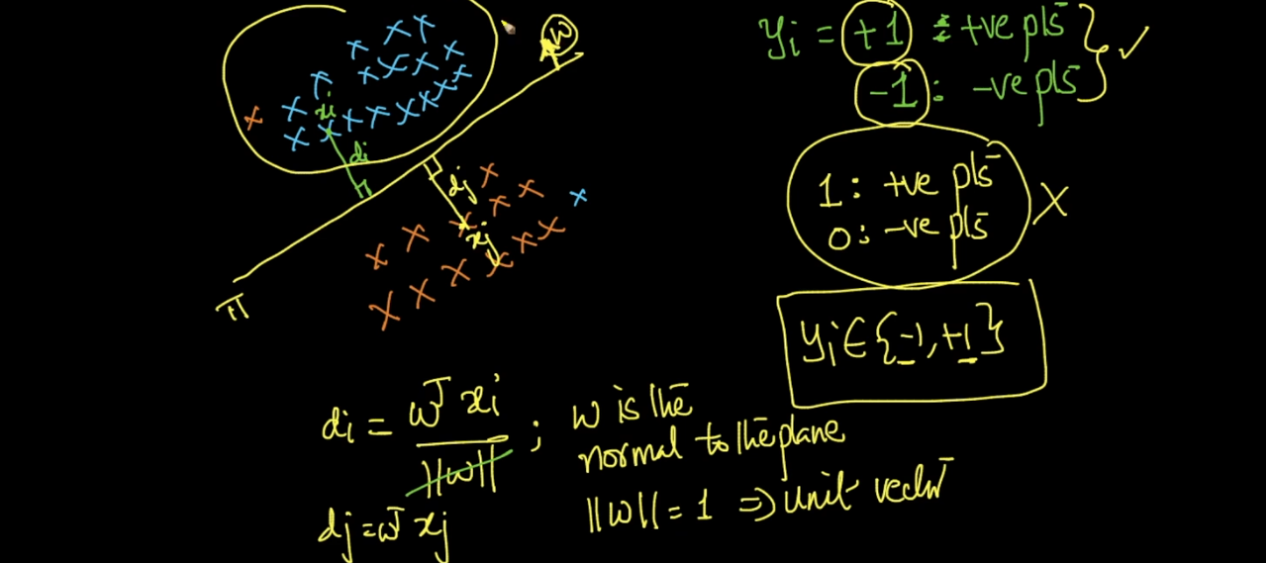 w
xi
di
dj
xj
π
yi = +1 : +ve pts
-1 : -ve pts
1 : +ve pts
0 : -ve pts
yi ∈ {-1, +1}
di = wᵀxi / ||w|| ; w is the
normal to the plane
||w|| = 1 ⇒ unit vector
dj = wᵀxj